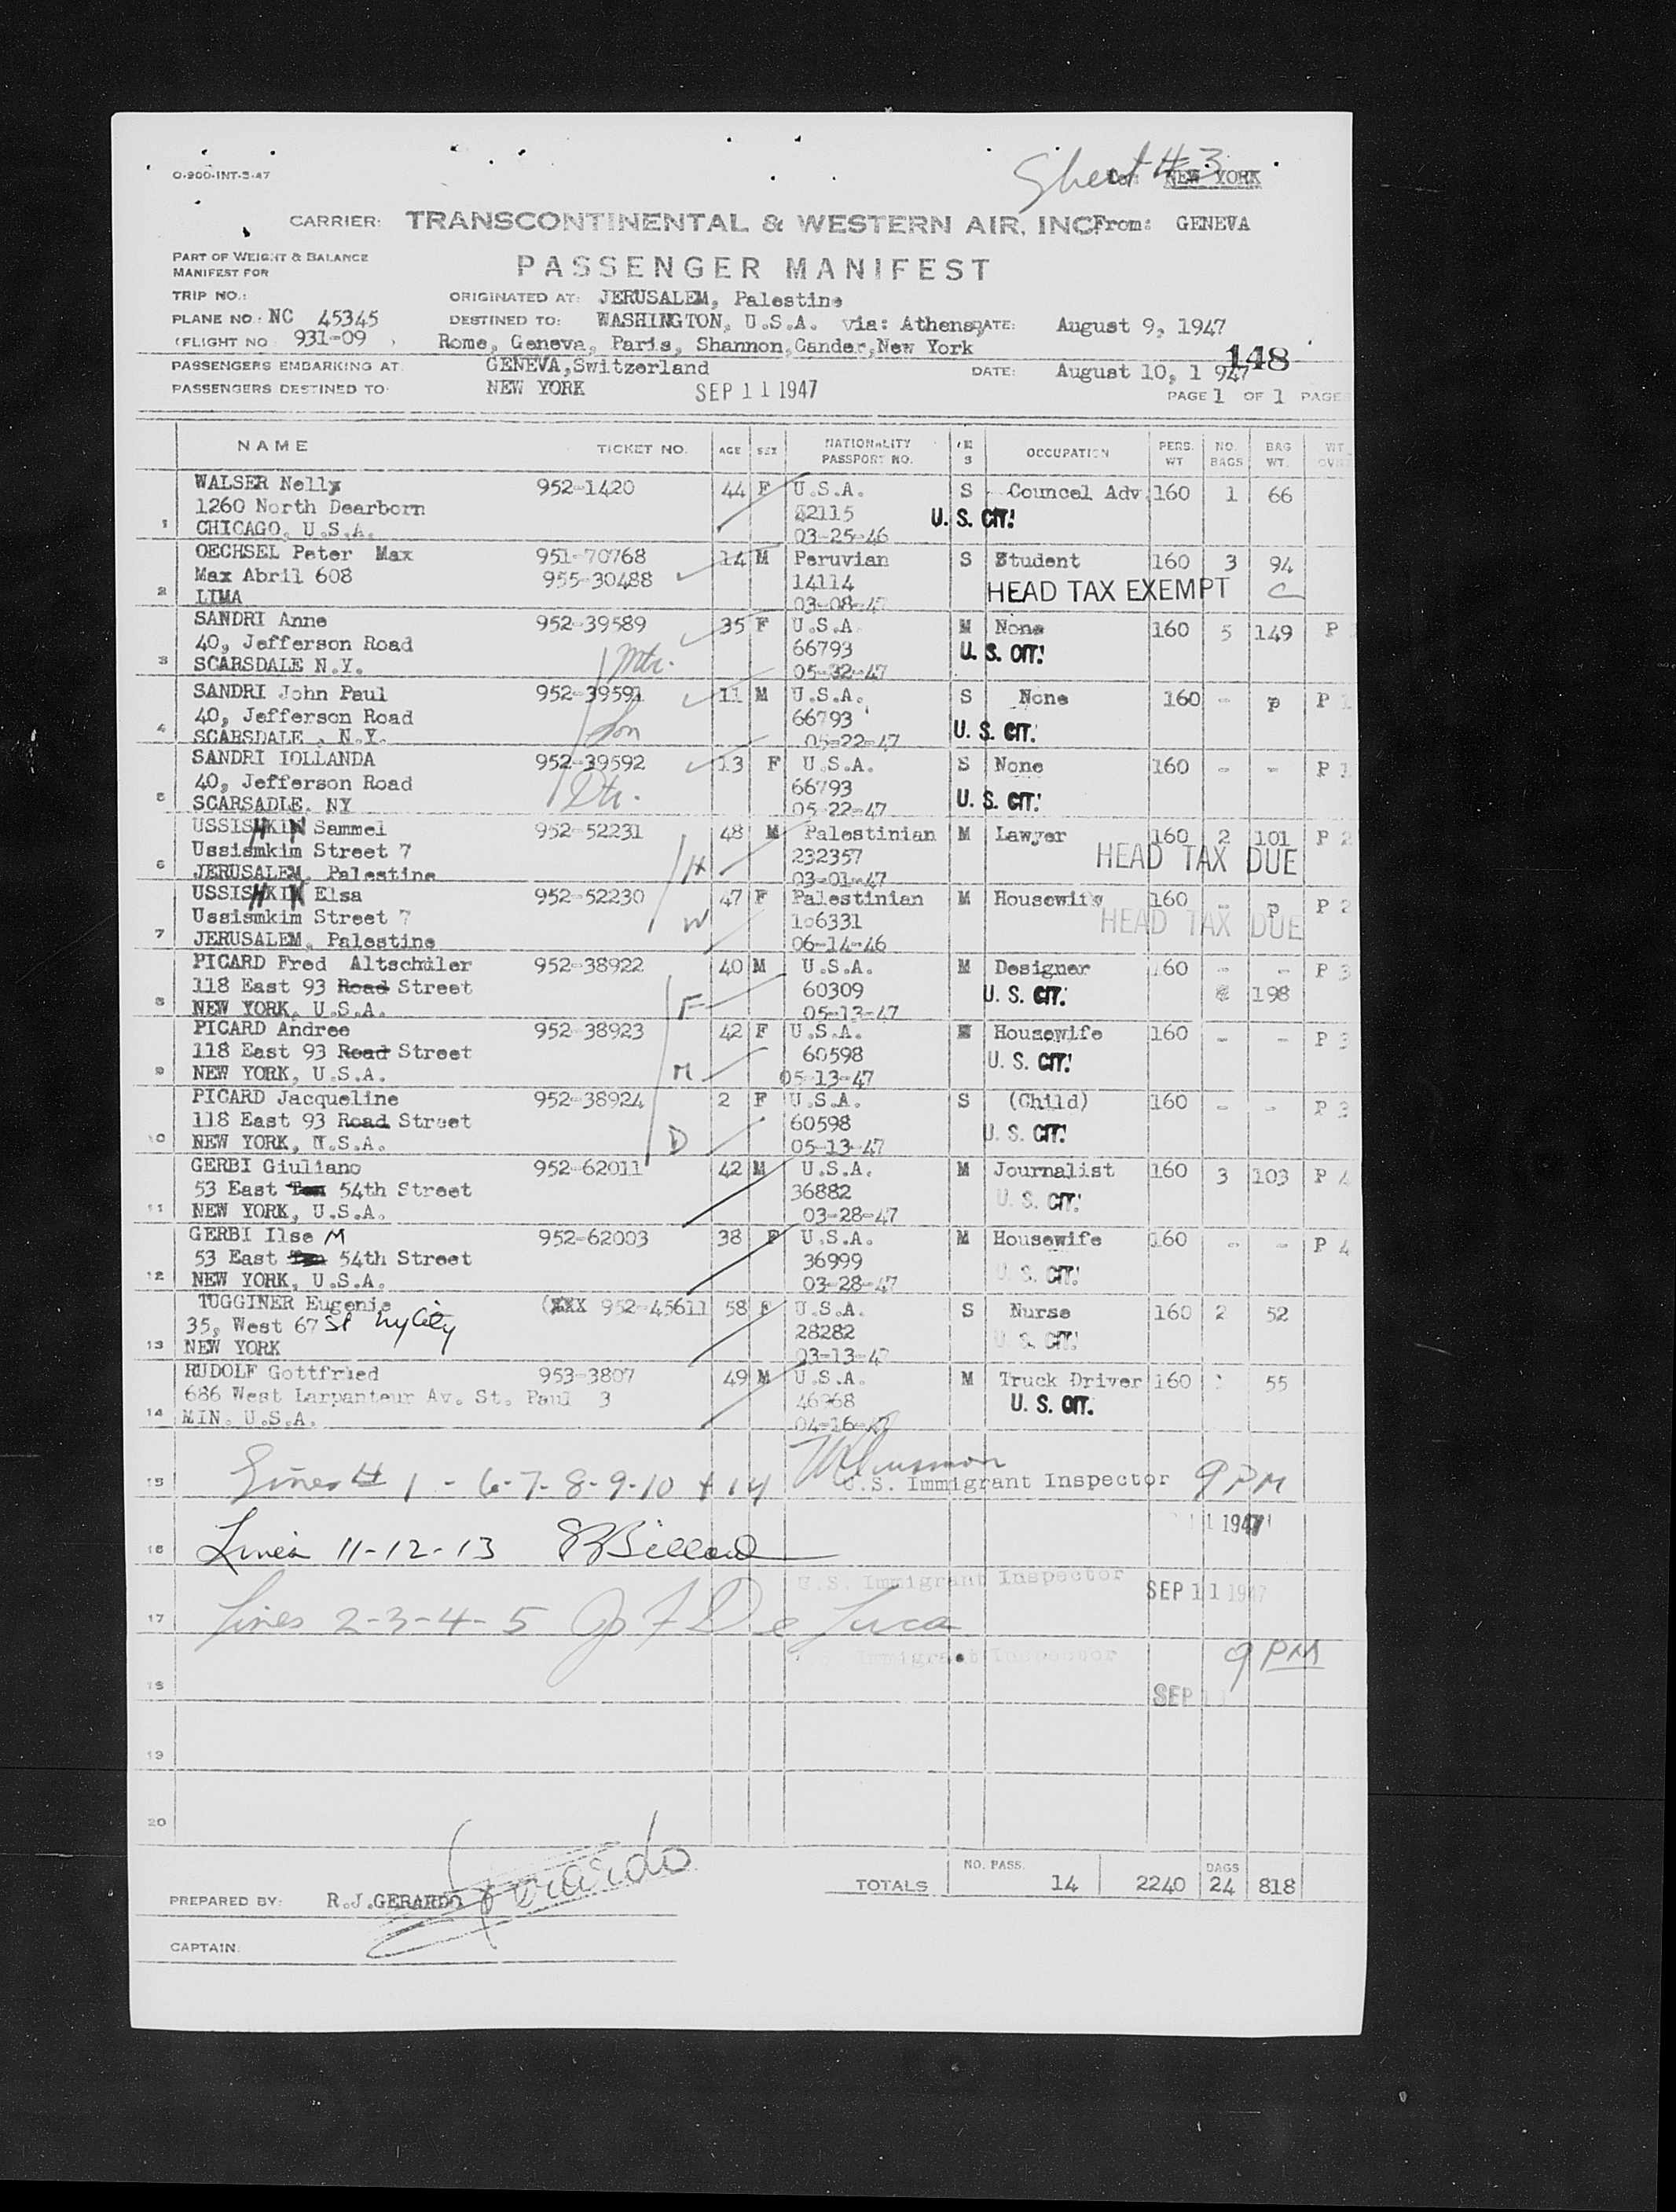 Sheet # 3
O-900-INT-3-47
NEW YORK
CARRIER: TRANSCONTINENTAL & WESTERN AIR, INC From: GENEVA
PART OF WEIGHT & BALANCE
MANIFEST FOR
PASSENGER MANIFEST
TRIP NO.:
ORIGINATED AT: JERUSALEM, Palestine
PLANE NO.: NC 45345
DESTINED TO: WASHINGTON, U.S.A. via: Athens, DATE: August 9, 1947
(FLIGHT NO 931-09 )
Rome, Geneva, Paris, Shannon, Gander, New York
148
PASSENGERS EMBARKING AT GENEVA, Switzerland DATE: August 10, 1947
PASSENGERS DESTINED TO: NEW YORK SEP 11 1947 PAGE 1 OF 1 PAGES
NAME TICKET NO. AGE SEX NATIONALITY PASSPORT NO. OCCUPATION PERS. WT NO. BAGS BAG WT.
WALSER Nelly 952-1420 44 F U.S.A. S Councel Adv. 160 1 66
1260 North Dearborn 42115 U. S. CIT!
1 CHICAGO, U.S.A. 03-25-46
OECHSEL Peter Max 951-70768 14 M Peruvian S Student 160 3 94
Max Abril 608 955-30488 14114 HEAD TAX EXEMPT C
2 LIMA 03-08-47
SANDRI Anne 952-39589 35 F U.S.A. M None 160 5 149 P
40, Jefferson Road Mtr. 66793 U. S. CIT!
3 SCARSDALE N.Y. 05-22-47
SANDRI John Paul 952-39591 11 M U.S.A. S None 160 - p P 1
40, Jefferson Road Son 66793
4 SCARSDALE , N.Y. 05-22-47 U. S. CIT!
SANDRI IOLLANDA 952-39592 13 F U.S.A. S None 160 - - P 1
40, Jefferson Road Dtr. 66793
5 SCARSADLE, NY 05-22-47 U. S. CIT!
USSISHKIN Sammel 952-52231 48 M Palestinian M Lawyer 160 2 101 P 2
Ussismkim Street 7 H 232357 HEAD TAX DUE
6 JERUSALEM, Palestine 03-01-47
USSISHKIN Elsa 952-52230 47 F Palestinian M Housewife 160 - p P 2
Ussismkim Street 7 W 106331 HEAD TAX DUE
7 JERUSALEM, Palestine 06-14-46
PICARD Fred Altschüler 952-38922 40 M U.S.A. M Designer 160 - - P 3
118 East 93 Road Street F 60309 U. S. CIT! 198
8 NEW YORK, U.S.A. 05-13-47
PICARD Andree 952-38923 42 F U.S.A. M Housewife 160 - - P 3
118 East 93 Road Street M 60598 U. S. CIT!
9 NEW YORK, U.S.A. 05-13-47
PICARD Jacqueline 952-38924 2 F U.S.A. S (Child) 160 - - P 3
118 East 93 Road Street D 60598 U. S. CIT!
10 NEW YORK, U.S.A. 05-13-47
GERBI Giuliano 952-62011 42 M U.S.A. M Journalist 160 3 103 P 4
53 East 54th Street 36882 U. S. CIT!
11 NEW YORK, U.S.A. 03-28-47
GERBI Ilse M 952-62003 38 F U.S.A. M Housewife 160 - - P 4
53 East 54th Street 36999 U. S. CIT!
12 NEW YORK, U.S.A. 03-28-47
TUGGINER Eugenie (XXX 952-45611 58 F U.S.A. S Nurse 160 2 52
35, West 67 St Ny City 28282 U. S. CIT!
13 NEW YORK 03-13-47
RUDOLF Gottfried 953-3807 49 M U.S.A. M Truck Driver 160 55
686 West Larpanteur Av. St. Paul 3 U. S. CIT.
14 MIN. U.S.A. 04-16-47
15 Lines # 1 - 6-7-8-9-10 + 14 U.S. Immigrant Inspector 9 PM
1947
16 Lines 11-12-13
U.S. Immigrant Inspector SEP 11 1947
17 Lines 2-3-4-5 De Luca
Immigrant Inspector 9 PM
18 SEP
19
20
TOTALS NO. PASS. 14 2240 BAGS 24 818
PREPARED BY: R.J.GERARDO Gerardo
CAPTAIN: